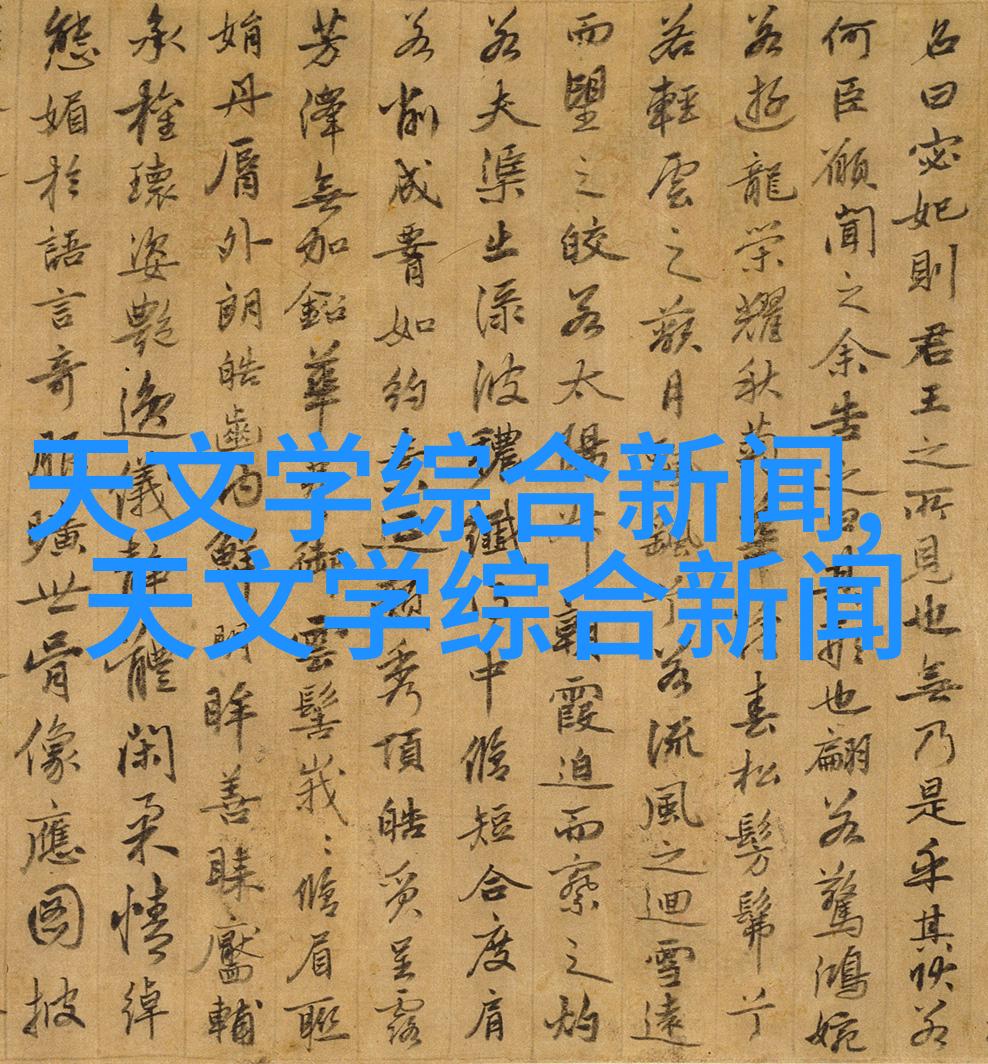 名曰宓妃則君王之所見也無乃是乎其狀若
何臣願聞之余告之曰其形也翩若驚鴻婉
若遊龍榮耀秋菊華茂春松髣髴兮
若輕雲之蔽月飄兮若流風之迴雪遠
而望之皎若太陽升朝霞迫而察之灼
若夫渠出淥波穠纖得中脩短合度肩
若削成腰如約素延頸秀項皓質呈露
芳澤無加鉛華弗御雲髻峩〻脩眉聯
娟丹脣外朗皓齒内鮮明眸善睞靨輔
承權瓌姿艷逸儀靜體閑柔情綽
態媚於語言奇服曠世骨像應圖披
天文学综合新闻,
天文学综合新闻